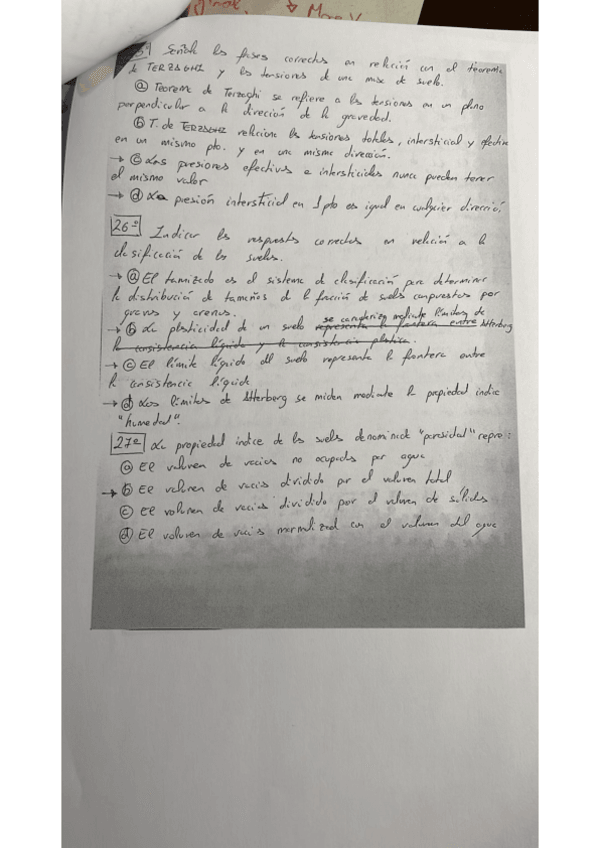 Señala las frases correctas en relación con el teorema
de TERZAGHI y las tensiones de una masa de suelo.
ⓐ Teorema de Terzaghi se refiere a las tensiones en un plano
perpendicular a la direción de la gravedad.
ⓑ T. de TERZAGHI relaciona las tensiones totales, intersticial y efectiva
en un mismo pto. y en una misma dirección.
→ ⓒ Las presiones efectivas e intersticiales nunca pueden tener
el mismo valor
→ ⓓ La presión intersticial en 1 pto es igual en cualquier dirección
26º Indicar las respuestas correctas en relación a la
clasificación de los suelos.
→ ⓐ El tamizado es el sistema de clasificación para determinar
la distribución de tamaños de la fracción de suelo compuestos por
gravas y arenas.
se caracteriza mediante límites de
→ ⓑ La plasticidad de un suelo representa la frontera entre Atterberg
la consistencia líquida y la consistencia plástica.
→ ⓒ El límite líquido del suelo representa la frontera entre
la consistencia líquida
→ ⓓ Los límites de Atterberg se miden mediante la propiedad índice
"humedad".
27º La propiedad índice de los suelos denominada "porosidad" repre:
ⓐ El volumen de vacíos no ocupados por agua
→ ⓑ El volumen de vacíos dividido por el volumen total
ⓒ El volumen de vacíos dividido por el volumen de sólidos
ⓓ El volumen de vacíos normalizad con el volumen del agua